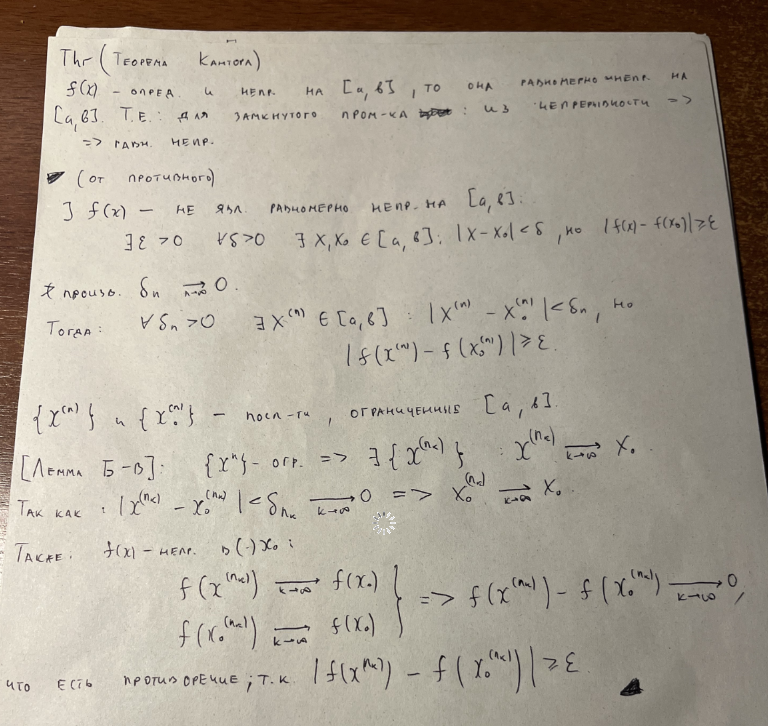 Thr (Теорема Кантора)
f(x) – опред. и непр. на [a, b], то она равномерно непр. на
[a, b]. Т.е.: для замкнутого пром-ка : из непрерывности =>
=> равн. непр.
(от противного)
] f(x) – не явл. равномерно непр. на [a, b]:
∃ε>0 ∀δ>0 ∃ x, x₀ ∈ [a, b]: |x - x₀| < δ, но |f(x) - f(x₀)| ≥ ε
произв. δₙ →(n→∞) 0.
Тогда: ∀δₙ>0 ∃ x⁽ⁿ⁾ ∈ [a, b] : |x⁽ⁿ⁾ - x₀⁽ⁿ⁾| < δₙ, но
|f(x⁽ⁿ⁾) - f(x₀⁽ⁿ⁾)| ≥ ε.
{x⁽ⁿ⁾} и {x₀⁽ⁿ⁾} – посл-ти, ограниченные [a, b].
[Лемма Б-В]: {xⁿ} - огр. => ∃{x^(nₖ)} : x^(nₖ) →(k→∞) x₀.
Так как: |x^(nₖ) - x₀^(nₖ)| < δ_nₖ →(k→∞) 0 => x₀^(nₖ) →(k→∞) x₀.
Также: f(x) – непр. в (·) x₀:
f(x^(nₖ)) →(k→∞) f(x₀) } => f(x^(nₖ)) - f(x₀^(nₖ)) →(k→∞) 0,
f(x₀^(nₖ)) →(k→∞) f(x₀)
что есть противоречие, т.к. |f(x^(nₖ)) - f(x₀^(nₖ))| ≥ ε